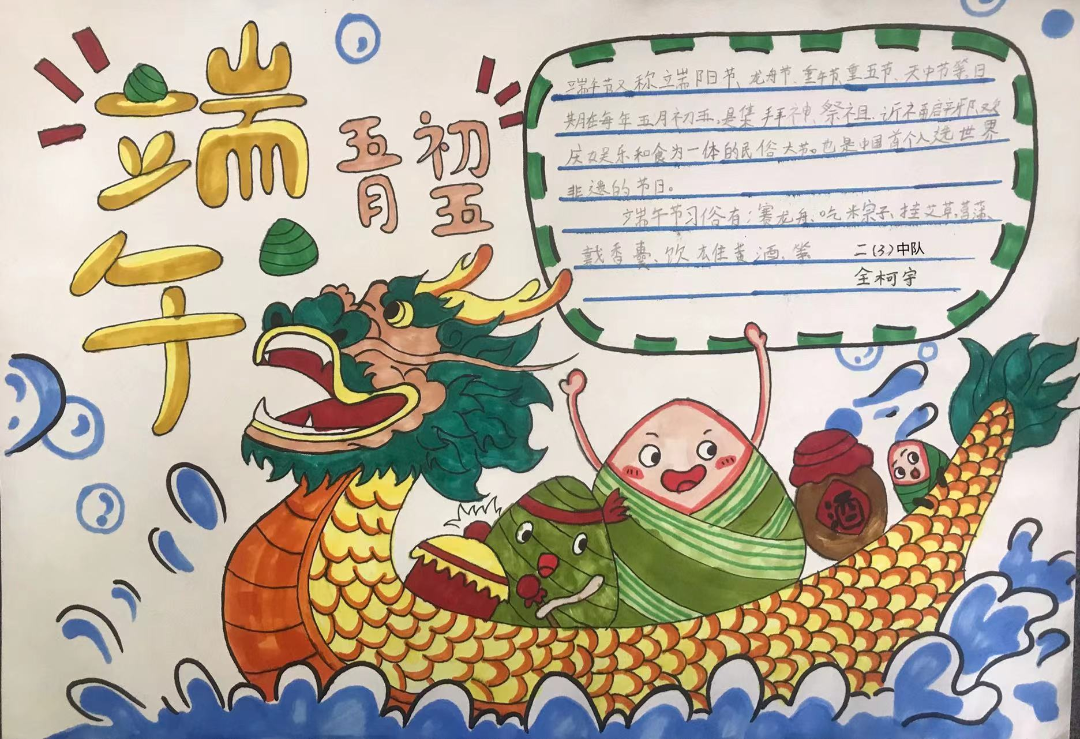 端午
五月
初五
端午节又称端阳节、龙舟节、重午节、重五节、天中节等,日
期在每年五月初五,是集拜神、祭祖、祈福辟邪、欢
庆娱乐和食为一体的民俗大节。也是中国首个入选世界
非遗的节日。
端午节习俗有:赛龙舟、吃粽子、挂艾草菖蒲、
戴香囊、饮雄黄酒、等
二(3)中队
全柯宇
酒